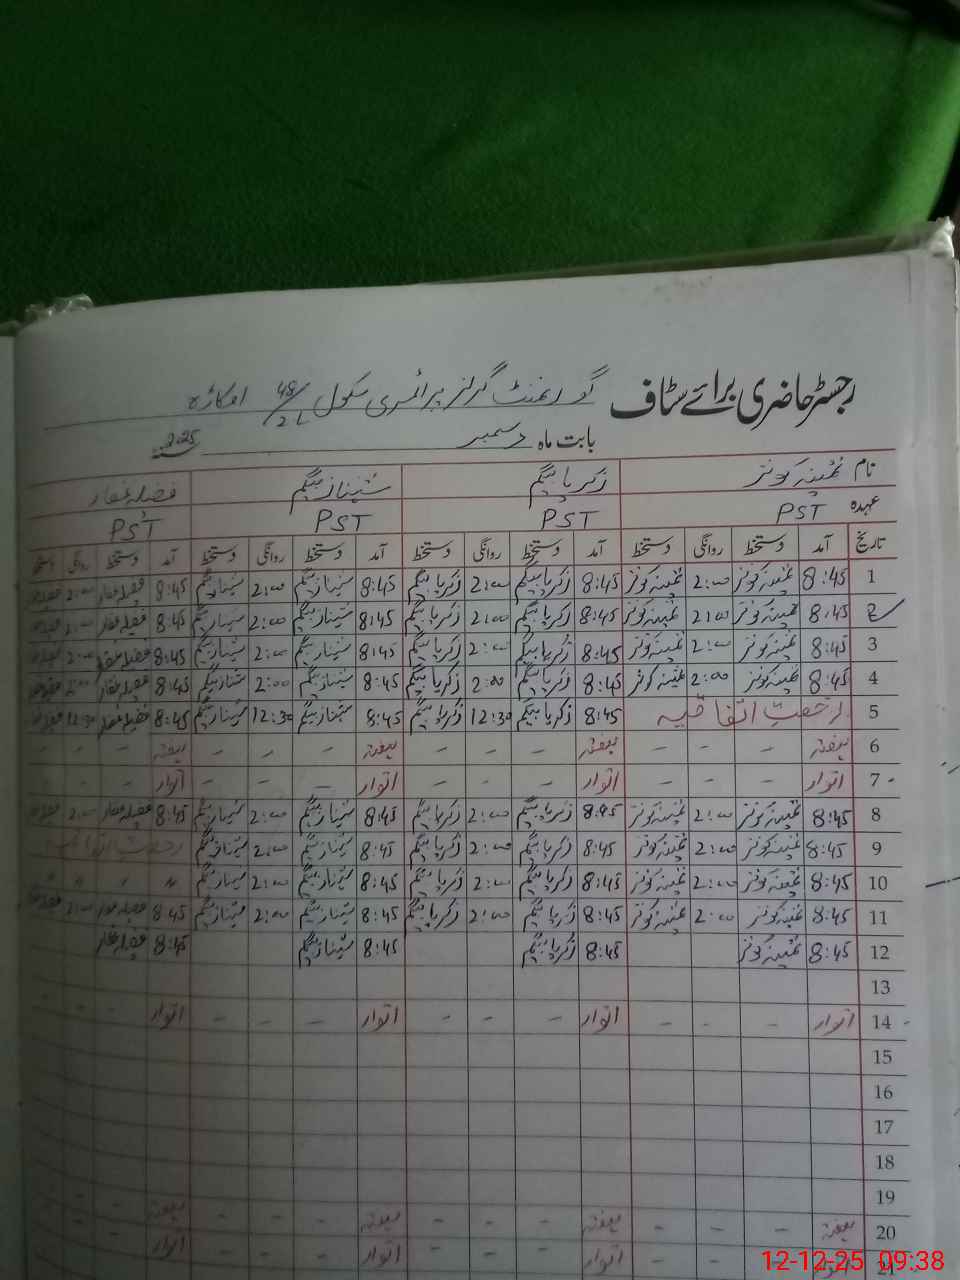 رجسٹر حاضری برائے سٹاف گورنمنٹ گرلز پرائمری سکول 48/2L اوکاڑہ
بابت ماہ دسمبر 2025
نام ثمینہ کوثر زکریا بیگم شہناز بیگم
عہدہ PST PST PST PST
تاریخ آمد دستخط روانگی دستخط آمد دستخط روانگی دستخط آمد دستخط روانگی دستخط آمد دستخط روانگی دستخط
1 8:45 ثمینہ کوثر 2:00 ثمینہ کوثر 8:45 زکریا بیگم 2:00 زکریا بیگم 8:45 شہناز بیگم 2:00 شہناز بیگم 8:45 2:00
2 8:45 ثمینہ کوثر 2:00 ثمینہ کوثر 8:45 زکریا بیگم 2:00 زکریا بیگم 8:45 شہناز بیگم 2:00 شہناز بیگم 8:45 2:00
3 8:45 ثمینہ کوثر 2:00 ثمینہ کوثر 8:45 زکریا بیگم 2:00 زکریا بیگم 8:45 شہناز بیگم 2:00 شہناز بیگم 8:45 2:00
4 8:45 ثمینہ کوثر 2:00 ثمینہ کوثر 8:45 زکریا بیگم 2:00 زکریا بیگم 8:45 شہناز بیگم 2:00 شہناز بیگم 8:45 2:00
5 رخصت اتفاقیہ 8:45 زکریا بیگم 12:30 زکریا بیگم 8:45 شہناز بیگم 12:30 شہناز بیگم 8:45 12:30
6 ہفتہ - - - ہفتہ - - - ہفتہ - - - ہفتہ - - -
7 اتوار - - - اتوار - - - اتوار - - - اتوار - - -
8 8:45 ثمینہ کوثر 2:00 ثمینہ کوثر 8:45 زکریا بیگم 2:00 زکریا بیگم 8:45 شہناز بیگم 2:00 شہناز بیگم 8:45 2:00
9 8:45 ثمینہ کوثر 2:00 ثمینہ کوثر 8:45 زکریا بیگم 2:00 زکریا بیگم 8:45 شہناز بیگم 2:00 شہناز بیگم رخصت
10 8:45 ثمینہ کوثر 2:00 ثمینہ کوثر 8:45 زکریا بیگم 2:00 زکریا بیگم 8:45 شہناز بیگم 2:00 شہناز بیگم 〃 〃 〃 〃
11 8:45 ثمینہ کوثر 2:00 ثمینہ کوثر 8:45 زکریا بیگم 2:00 زکریا بیگم 8:45 شہناز بیگم 2:00 شہناز بیگم 8:45 2:00
12 8:45 ثمینہ کوثر 8:45 زکریا بیگم 8:45 شہناز بیگم 8:45
13
14 اتوار - - - اتوار - - - اتوار - - - اتوار - - -
15
16
17
18
19
20 ہفتہ - - - ہفتہ - - - ہفتہ - - - ہفتہ - - -
21 اتوار - - - اتوار - - - اتوار - - -
12-12-25 09:38